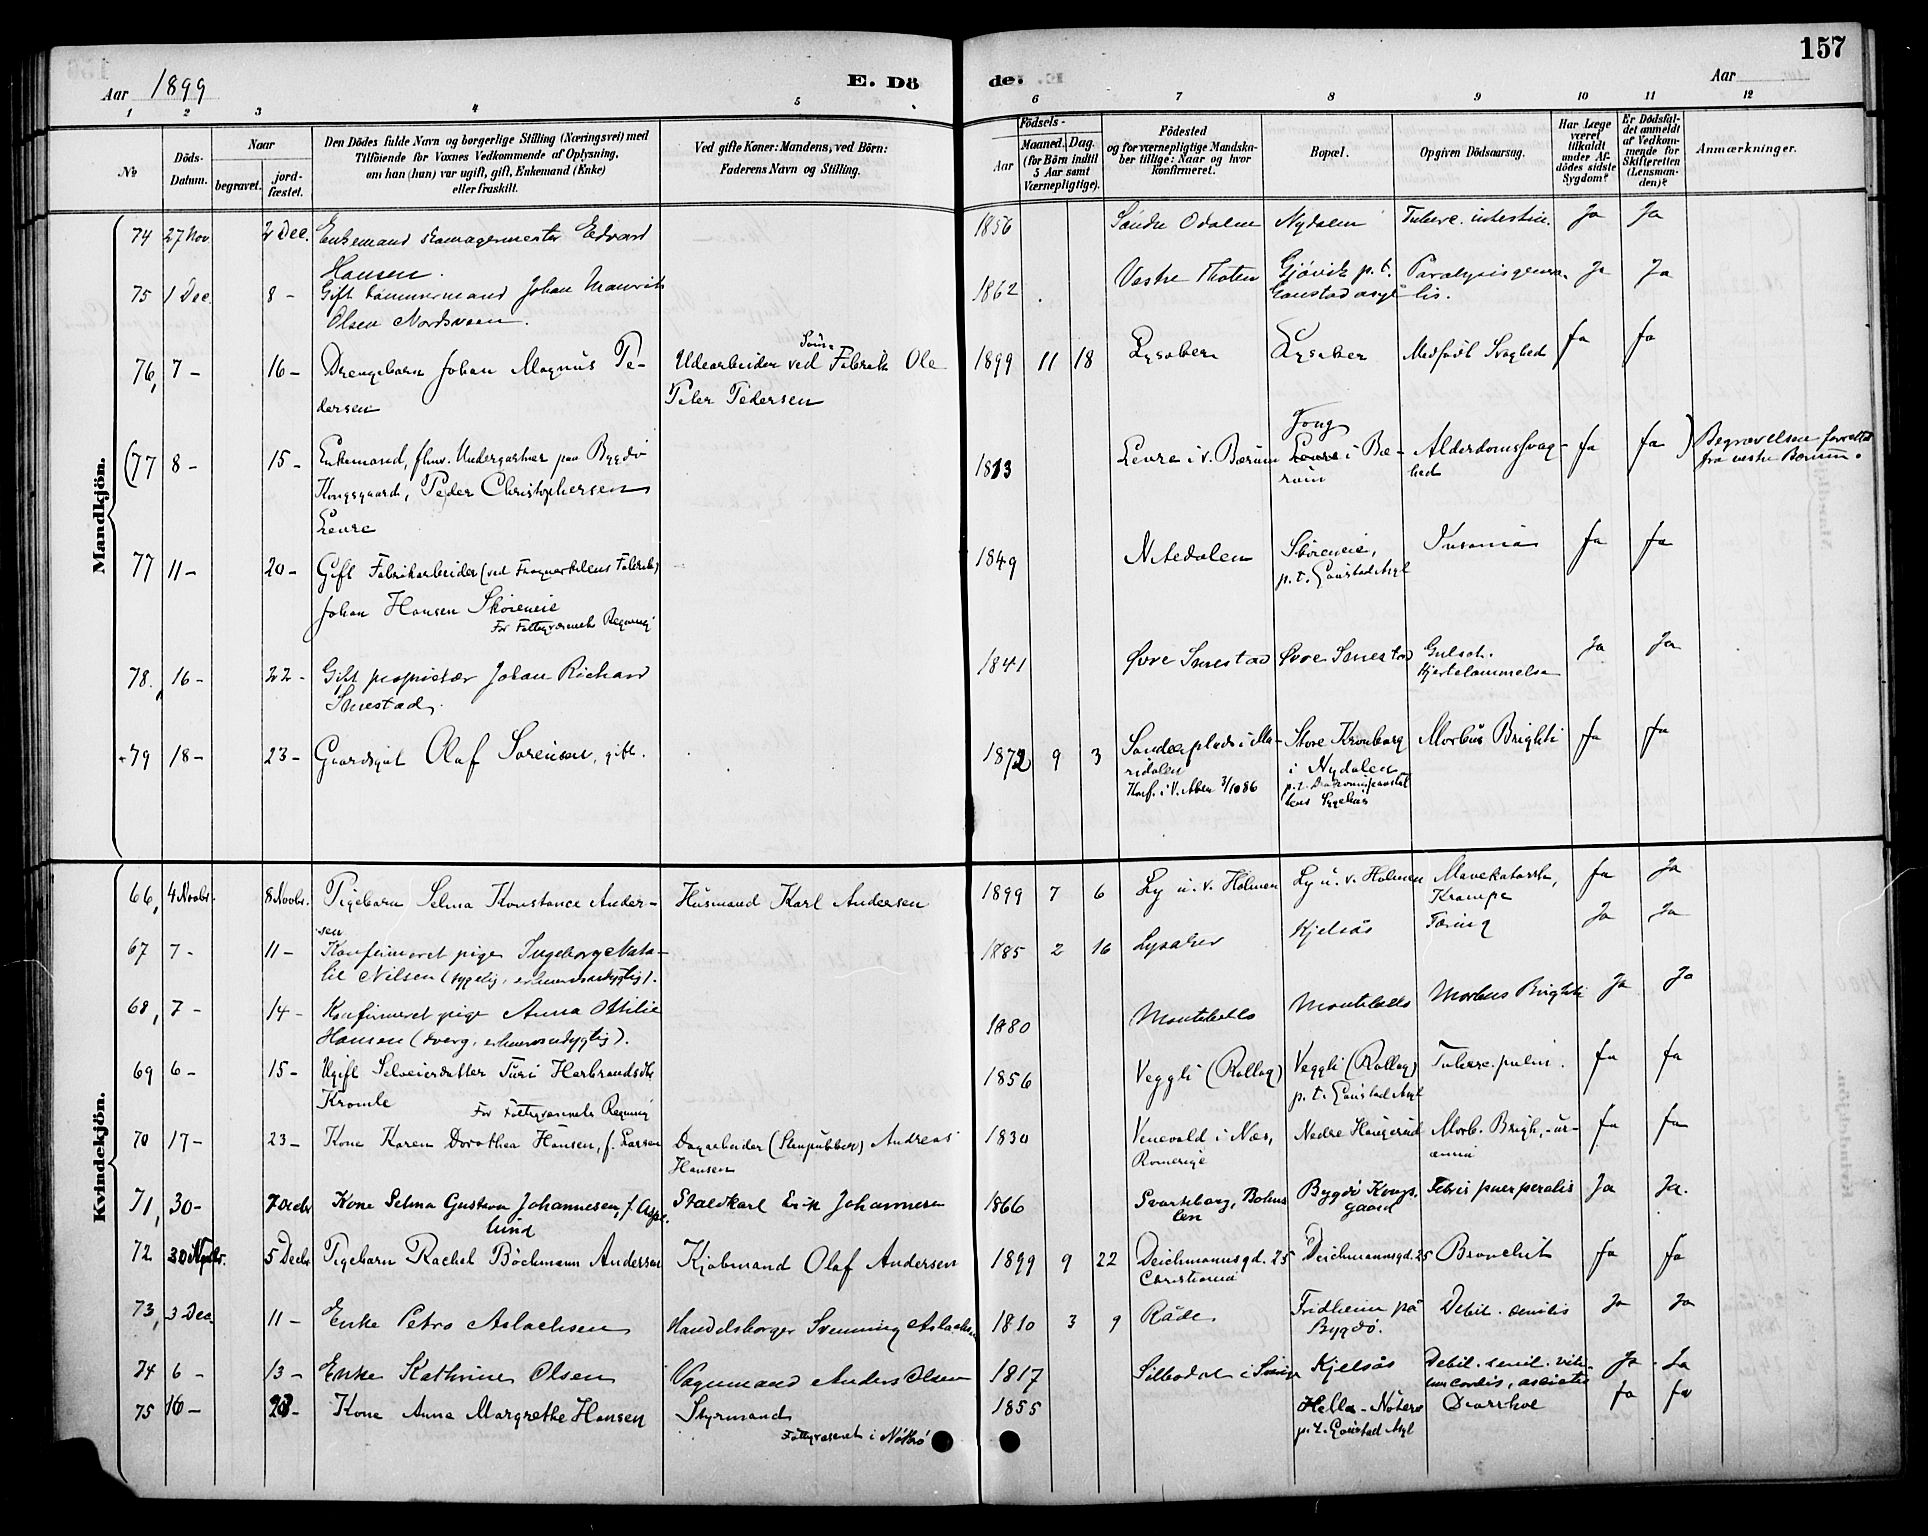 157
Aar 1899
E. Döde.
Aar
1 2 3 4 5 6 7 8 9 10 11 12
No
Döds-Datum.
Naar
begravet.
jord-fæstet.
Den Dödes fulde Navn og borgerlige Stilling (Næringsvei) med
Tilföiende for Voxnes Vedkommende af Oplysning,
om han (hun) var ugift, gift, Enkemand (Enke)
eller fraskilt.
Ved gifte Koner: Mandens, ved Börn:
Faderens Navn og Stilling.
Födsels-
Aar
Maaned. Dag.
(for Börn indtil
5 Aar samt
Værnepligtige).
Födested
og for værnepligtige Mandskaber tillige: Naar og hvor
konfirmeret.
Bopæl.
Opgiven Dödsaarsag.
Har Læge
været
tilkaldt
under Afdödes sidste
Sygdom?
Er Dödsfaldet anmeldt
af Vedkommende for
Skifteretten
(Lensmanden)?
Anmærkninger.
Mandkjön.
74 27 Nov 2 Dec. Enkemand Edvard Hansen. 1856 Söndre Odalen Nydalen Tuberc. intestin. Ja Ja
75 1 Dec. 8 - Gift tömmermand Johan Mauritz Olsen Nordsveen. 1862 Vestre Thoten Gjövik p. t. Gaustad asyl Paralysis generalis. Ja Ja
76, 7 - 16 - Drengebarn Johan Magnus Pedersen Udearbeider ved Fabrik Ole Peter Pedersen 1899 11 18 Lysaker Lysaker Medfödt Svaghed Ja Ja
(77 8 - 15 - Enkemand, fhv. Undergartner paa Bygdö Kongsgaard, Peder Christophersen Levre 1813 Levre i v. Bærum Jong Levre i Bærum Alderdomssvaghed Ja Ja ) Begravelsen forrettet fra vestre Bærum.
77 11 - 20 - Gift Fabrikarbeider (ved Fabrik) Johan Hansen Sköreneie For Fattigvæsenets Regning 1849 Nitedalen Sköreneie, p. t. Gaustad Asyl Insania Ja Ja
78. 16 - 22 - Gift proprietær Johan Richard Smestad. 1841 Øvre Smestad Øvre Smestad Gulsot. Hjertelammelse Ja Ja
79 18 - 23 - Gaardsgut Olaf Sorensen, gift. 1872 9 3 Sanderplads i Maridalen Konf. i V. Aker 3/10 86 Store Kronborg i Nydalen p. t. Diakonissanstaltens Sygehus Morbus Brighti Ja Ja
Kvindekjön.
66, 4 Novbr. 8 Novbr. Pigebarn Selma Konstance Andersen Husmand Karl Andersen 1899 7 6 Ly u. v. Holmen Ly u. v. Holmen Mavekatarrh, Krampe Ja Ja
67 7 - 11 - Konfirmeret pige Ingeborg Natalie Nilsen (sygelig, erhvervsudygtig). 1885 2 16 Lysaker Kjelsås Tæring Ja Ja
68, 7 - 14 - Konfirmeret pige Anna Ottilie Hansen (dverg, erhvervsudygtig). 1880 Montebello Montebello Morbus Brighti Ja Ja
69 6 - 15 - Ugift Selveierdatter Turi Harbrandsdtr. Kromle For Fattigvæsenets Regning 1856 Veggli (Rollag) Veggli (Rollag) p. t. Gaustad Asyl Tuberc. pulm. Ja Ja
70 17 - 23 - Kone Karen Dorothea Hansen, f. Larsen Dagarbeider (Stenpukker) Andreas Hansen 1830 Venevald i Næs, Romerige Nedre Haugerud Morb. Brigh., uræmia Ja Ja
71, 30 - 7 Decbr Kone Selma Gustava Johannesen, f. Asplund Staldkarl Erik Johannesen 1866 Svarteborg, Bohuslen Bygdö Kongsgaard Febris puerperalis Ja Ja.
72 30 Novbr. 5 Decbr Pigebarn Rachel Böckmann Andersen Kjöbmand Olaf Andersen 1899 9 22 Deichmannsgd. 25 Christiania Deichmannsgd. 25 Bronchit Ja Ja
73, 3 Dec. 11 - Enke Petra Aslachsen Handelsborger Svenning Aslachsen 1810 3 9 Råde Fridheim på Bygdö. Debil. senilis Ja Ja
74 6 - 13 - Enke Kathrine Olsen Vognmand Anders Olsen 1817 Silbodal i Sverige Kjelsås Debil. senil. vitium cordis, ascites Ja Ja
75 16 - 23 - Kone Anna Margrethe Hansen Styrmand Fattigvæsenet i Nötterö 1855 Hella - Nöterö p. t. Gaustad Asyl Diarrhoe Ja Ja